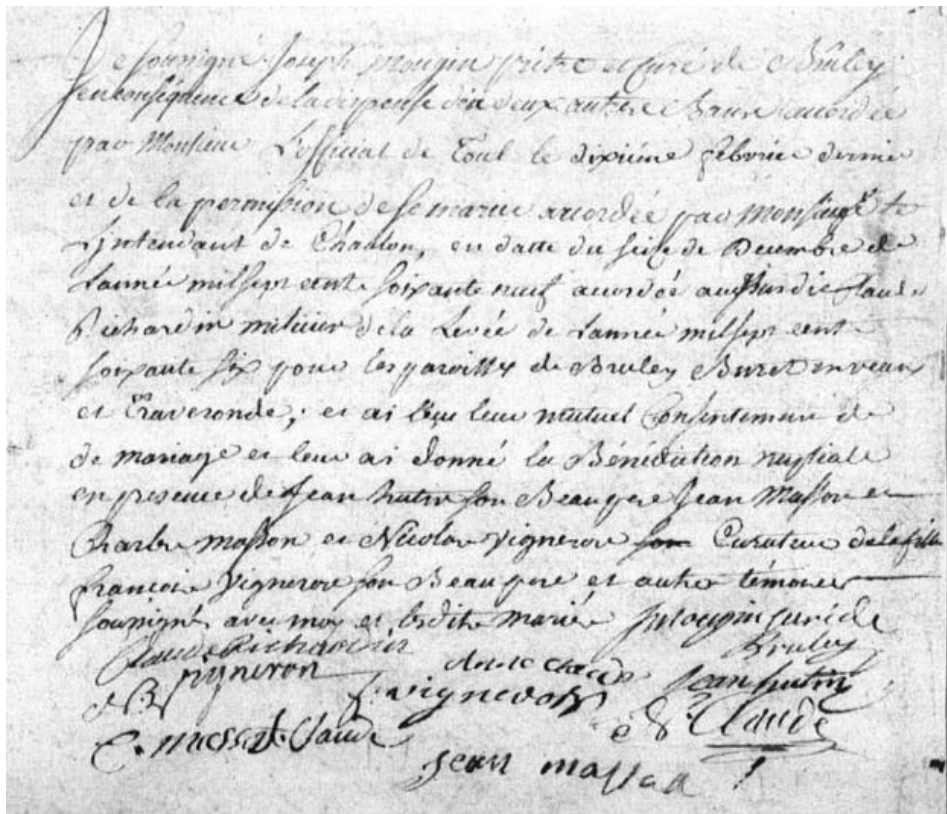 Je soussigné Joseph Mougin pritre et curé de Bruley
en conséquence de la dispense des deux autres Bans accordée
par Monsieur L'official de Toul le dixième febvrier dernier
et de la permission de se marier accordée par Monseig.r
L'intendant de Chaalon, en datte du seise de Decembre de
L'année mil sept cent soixante neuf accordée au susdit Claude
Richardin milicier de la Levée de L'année mil sept cent
soixante six pour les paroisses de Bruley Buret en vaux
et Traveronde; et ai reçu leur mutuel Consentement de
de mariage et leur ai donné la Bénédiction nuptiale
en presence de Jean hutin son Beaupere Jean Masson et
Charles masson et Nicolas vigneron son Curateur de la fille
françois Vigneron son Beaupere et autres témoins
soussignés avec moy et lesdits mariés J mougin curé de
Bruley
Claude Richardin
Vigneron
f. vigneron Jean hutin
Claude
Jean massan